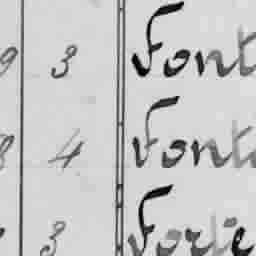 9 3 Font
8 4 Font
3